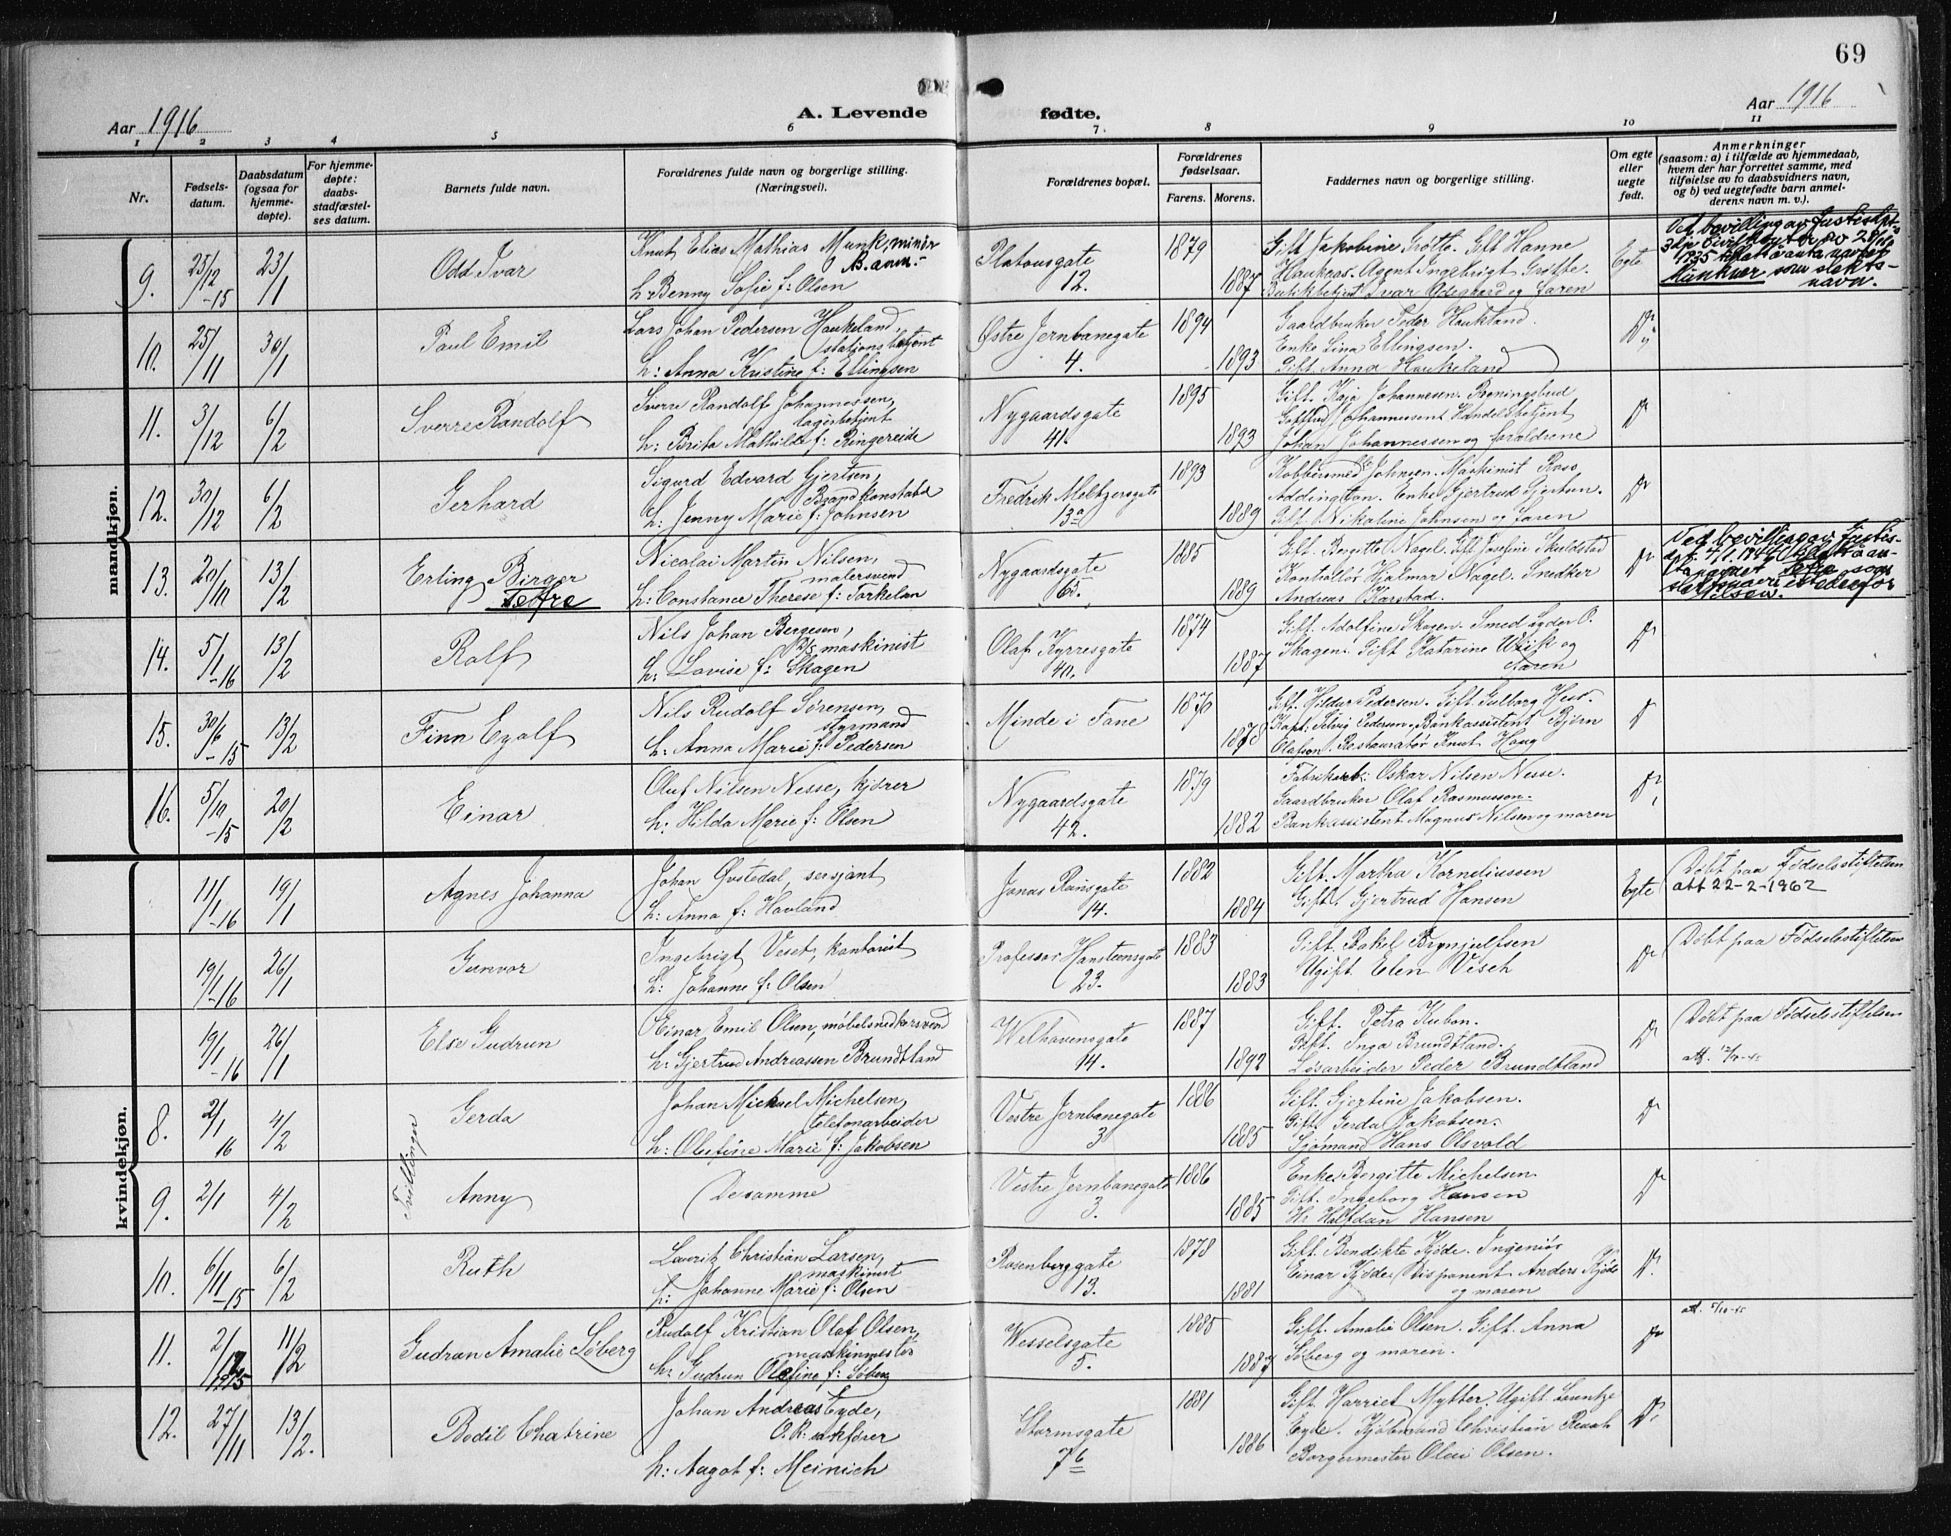 69
Aar 1916
A. Levende fødte.
Aar 1916
1 2 3 4 5 6 7. 8 9 10 11
Nr.
Fødsels-
datum.
Daabsdatum
(ogsaa for
hjemme-
døpte).
For hjemme-
døpte:
daabs-
stadfæstel-
ses datum.
Barnets fulde navn.
Forældrenes fulde navn og borgerlige stilling.
(Næringsvei).
Forældrenes bopæl.
Forældrenes
fødselsaar.
Farens. Morens.
Faddernes navn og borgerlige stilling.
Om egte
eller
uegte
født.
Anmerkninger
(saasom: a) i tilfælde av hjemmedaab,
hvem der har forrettet samme, med
tilføielse av to daabsvidners navn,
og b) ved uegtefødte barn anmel-
derens navn m. v.).
mandkjøn.
9. 25/12-15 23/1 Odd Ivar
Knut Elias Mathias Munk, minør
B. anm:-
h: Benny Sofie f: Olsen
Platousgate
12.
1879 1887
Gift Jakobine Grøtte. Gift Hanne
Hauknas. Agent Ingebrigt Grøtte.
Butikbetjent Ivar Ødegaard og faren
Egte
Ved bevilling av Justisdpt
1935 tillatt å anta navnet
Munkner som slekts-
navn.
10. 25/11 30/1 Paul Emil
Lars Johan Pedersen Haukeland,
stationsbetjent
h: Anna Kristine f: Ellingsen
Østre Jernbanegate
4.
1894 1893
Gaardbruker Peder Haukland.
Enke Lina Ellingsen.
Gift. Anna Haukeland
Do
11. 3/12 6/2 Sverre Randolf
Sverre Randolf Johannessen,
lagerbetjent
h: Brita Mathilde f: Ringereide
Nygaardsgate
41.
1895 1893
Gift. Kaja Johannesen. Roningsbud
Gottfred Johannesent Handelsbetjent
Johan Johannessen og forældrene
Do
12. 30/12 6/2 Gerhard
Sigurd Edvard Gjertsen,
Brandkonstabel
h: Jenny Marie f: Johnsen
Fredrik Meltzersgate
13a
1893 1889
Kobbersmed Johnsen. Maskinist Ross
Addington. Enke Gjertrud Gjertsen.
Gift. Nikoline Johnsen og faren
Do
13. 20/11 13/2 Erling Birger
Tefre
Nicolai Martin Nilsen,
malersvend
h: Constance Therese f: Torkelsn
Nygaardsgate
65.
1885 1889
Gift. Bergitte Nagel. Gift Josefine Skuldstad
Kontrollør Hjalmar Nagel. Snedker
Andreas Karstad.
Do
Ved bevilling av Justis-
navnet Tefre som
slektsnavn istedenfor
Nilsen.
14. 5/1-16 13/2 Rolf
Nils Johan Bergesen,
D/S maskinist
h: Lovise f: Skagen
Olaf Kyrresgate
40.
1874 1887
Gift. Adolfine Skagen. Smed Peder O.
Skagen. Gift Katarine Wiik og
faren
Do
15. 30/6-15 13/2 Finn Eyolf
Nils Rudolf Sørensen,
styrmand
h: Anna Marie f: Pedersen
Minde i Fane
1876 1878
Gift. Hildur Pedersen. Gift. Gulborg Hest.
Kapt. Pedersen, Bankassistent Bjørn
Olafson. Restauratør Knut Haug
Do
16. 5/10-15 20/2 Einar
Oluf Nilsen Nesse, kjører
h: Hilda Marie f: Olsen
Nygaardsgate
42.
1879 1882
Fabrikarb: Oskar Nilsen Nesse.
Gaardbruker Olaf Rasmusson.
Bankassistent Magnus Nilsen og moren
Do
kvindekjøn.
11/1-16 19/1 Agnes Johanna
Johan Øvstedal, sersjant
h: Anna f: Hovland
Jonas Reinsgate
14.
1882 1884
Gift. Martha Korneliussen
Gift. Gjertrud Hansen
Egte
Døbt paa Fødselsstiftelsen
att 22-2-1962
19/1-16 26/1 Gunvor
Ingebrigt Veset, kontorist
h: Johanne f: Olsen
Professor Hansteensgate
23.
1883 1883
Gift. Rakel Brynjulfsen
Ugift. Elen Visch
Do
Døbt paa Fødselsstiftelsen
19/1-16 26/1 Else Gudrun
Einar Emil Olsen, møbelsnedkersvend
h: Gjertrud Andreassen Brundtland
Welhavensgate
14.
1887 1892
Gift. Petra Kubon.
Gift. Inga Brundtland.
Løsarbeider Peder Brundtland
Do
Døbt paa Fødselsstiftelsen
8. 2/1 16 4/2 Gerda
Tvillinger
Johan Mickael Michelsen,
telefonarbeider
h: Olufine Marie f: Jakobsen
Vestre Jernbanegate
3
1886 1885
Gift. Gjertine Jakobsen.
Gift Gerda Jakobsen.
Sjømand Hans Olsvold
Do
9. 2/1 4/2 Anny
De samme
Vestre Jernbanegate
3.
1886 1885
Enke Bergitte Michelsen.
Gift. Ingeborg Hansen
Hr. Halfdan Hansen
Do
10. 6/11-15 6/2 Ruth
Laurits Christian Larsen,
maskinist
h: Johanne Marie f: Olsen
Rosenberggate
13.
1878 1881
Gift. Bendikte Kjøde. Ingeniør
Einar Kjøde. Disponent Anders Kjøde
og moren
Do
11. 2/12 15 11/2 Gudrun Amalie Søberg
Rudolf Kristian Olaf Olsen,
maskinmester
h: Gudrun Olefine f: Søberg
Wesselsgate
5.
1885 1887
Gift. Amalie Olsen. Gift. Anna
Søberg og moren.
Do
12. 27/11 13/2. Bodil Chatrine
Johan Andreas Eyde,
O. R. sakfører
h: Aagot f: Meinich
Stormsgate
7b
1881 1886
Gift. Harriet Mytter. Ugift Leuntze
Eyde. Kjøbmand Christian Raah
Borgermester Olai Olsen.
Do